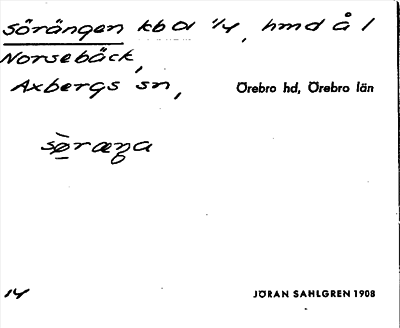 sörängen kb a 1/4, hmd å 1
Norsebäck,
Axbergs sn, Örebro hd, Örebro län
sø̀ræŋa
14 JÖRAN SAHLGREN 1908